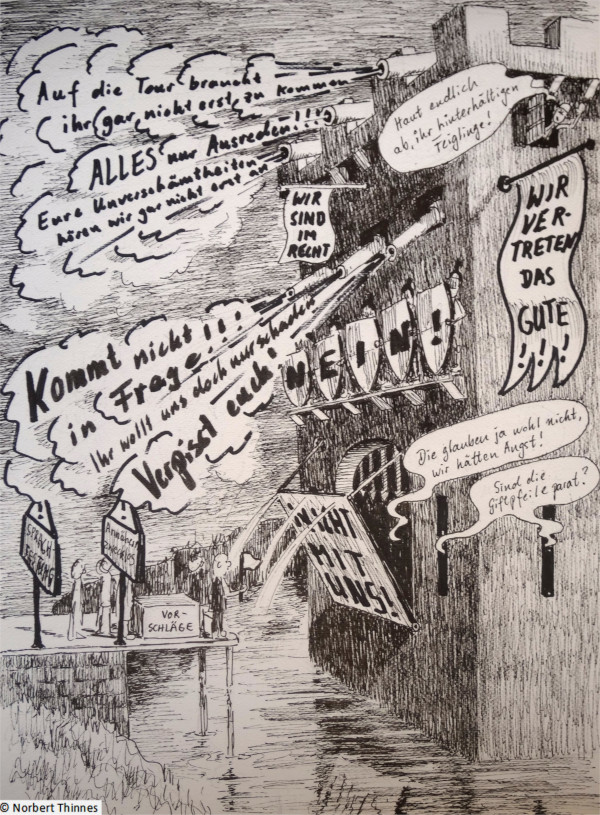 Auf die Tour braucht
ihr gar nicht erst zu kommen
ALLES nur Ausreden!!!
Eure Unverschämtheiten
hören wir gar nicht erst an
Haut endlich
ab, ihr hinterhältigen
Feiglinge!
WIR
SIND
IM
RECHT
WIR
VER-
TRETEN
DAS
GUTE
!!!
Kommt nicht
in Frage!!!
Ihr wollt uns doch nur schaden
Verpisst euch!
NEIN!
Die glauben ja wohl nicht,
wir hätten Angst!
Sind die
Giftpfeile parat?
NICHT
MIT
UNS!
!
!
VOR-
SCHLÄGE
© Norbert Thinnes